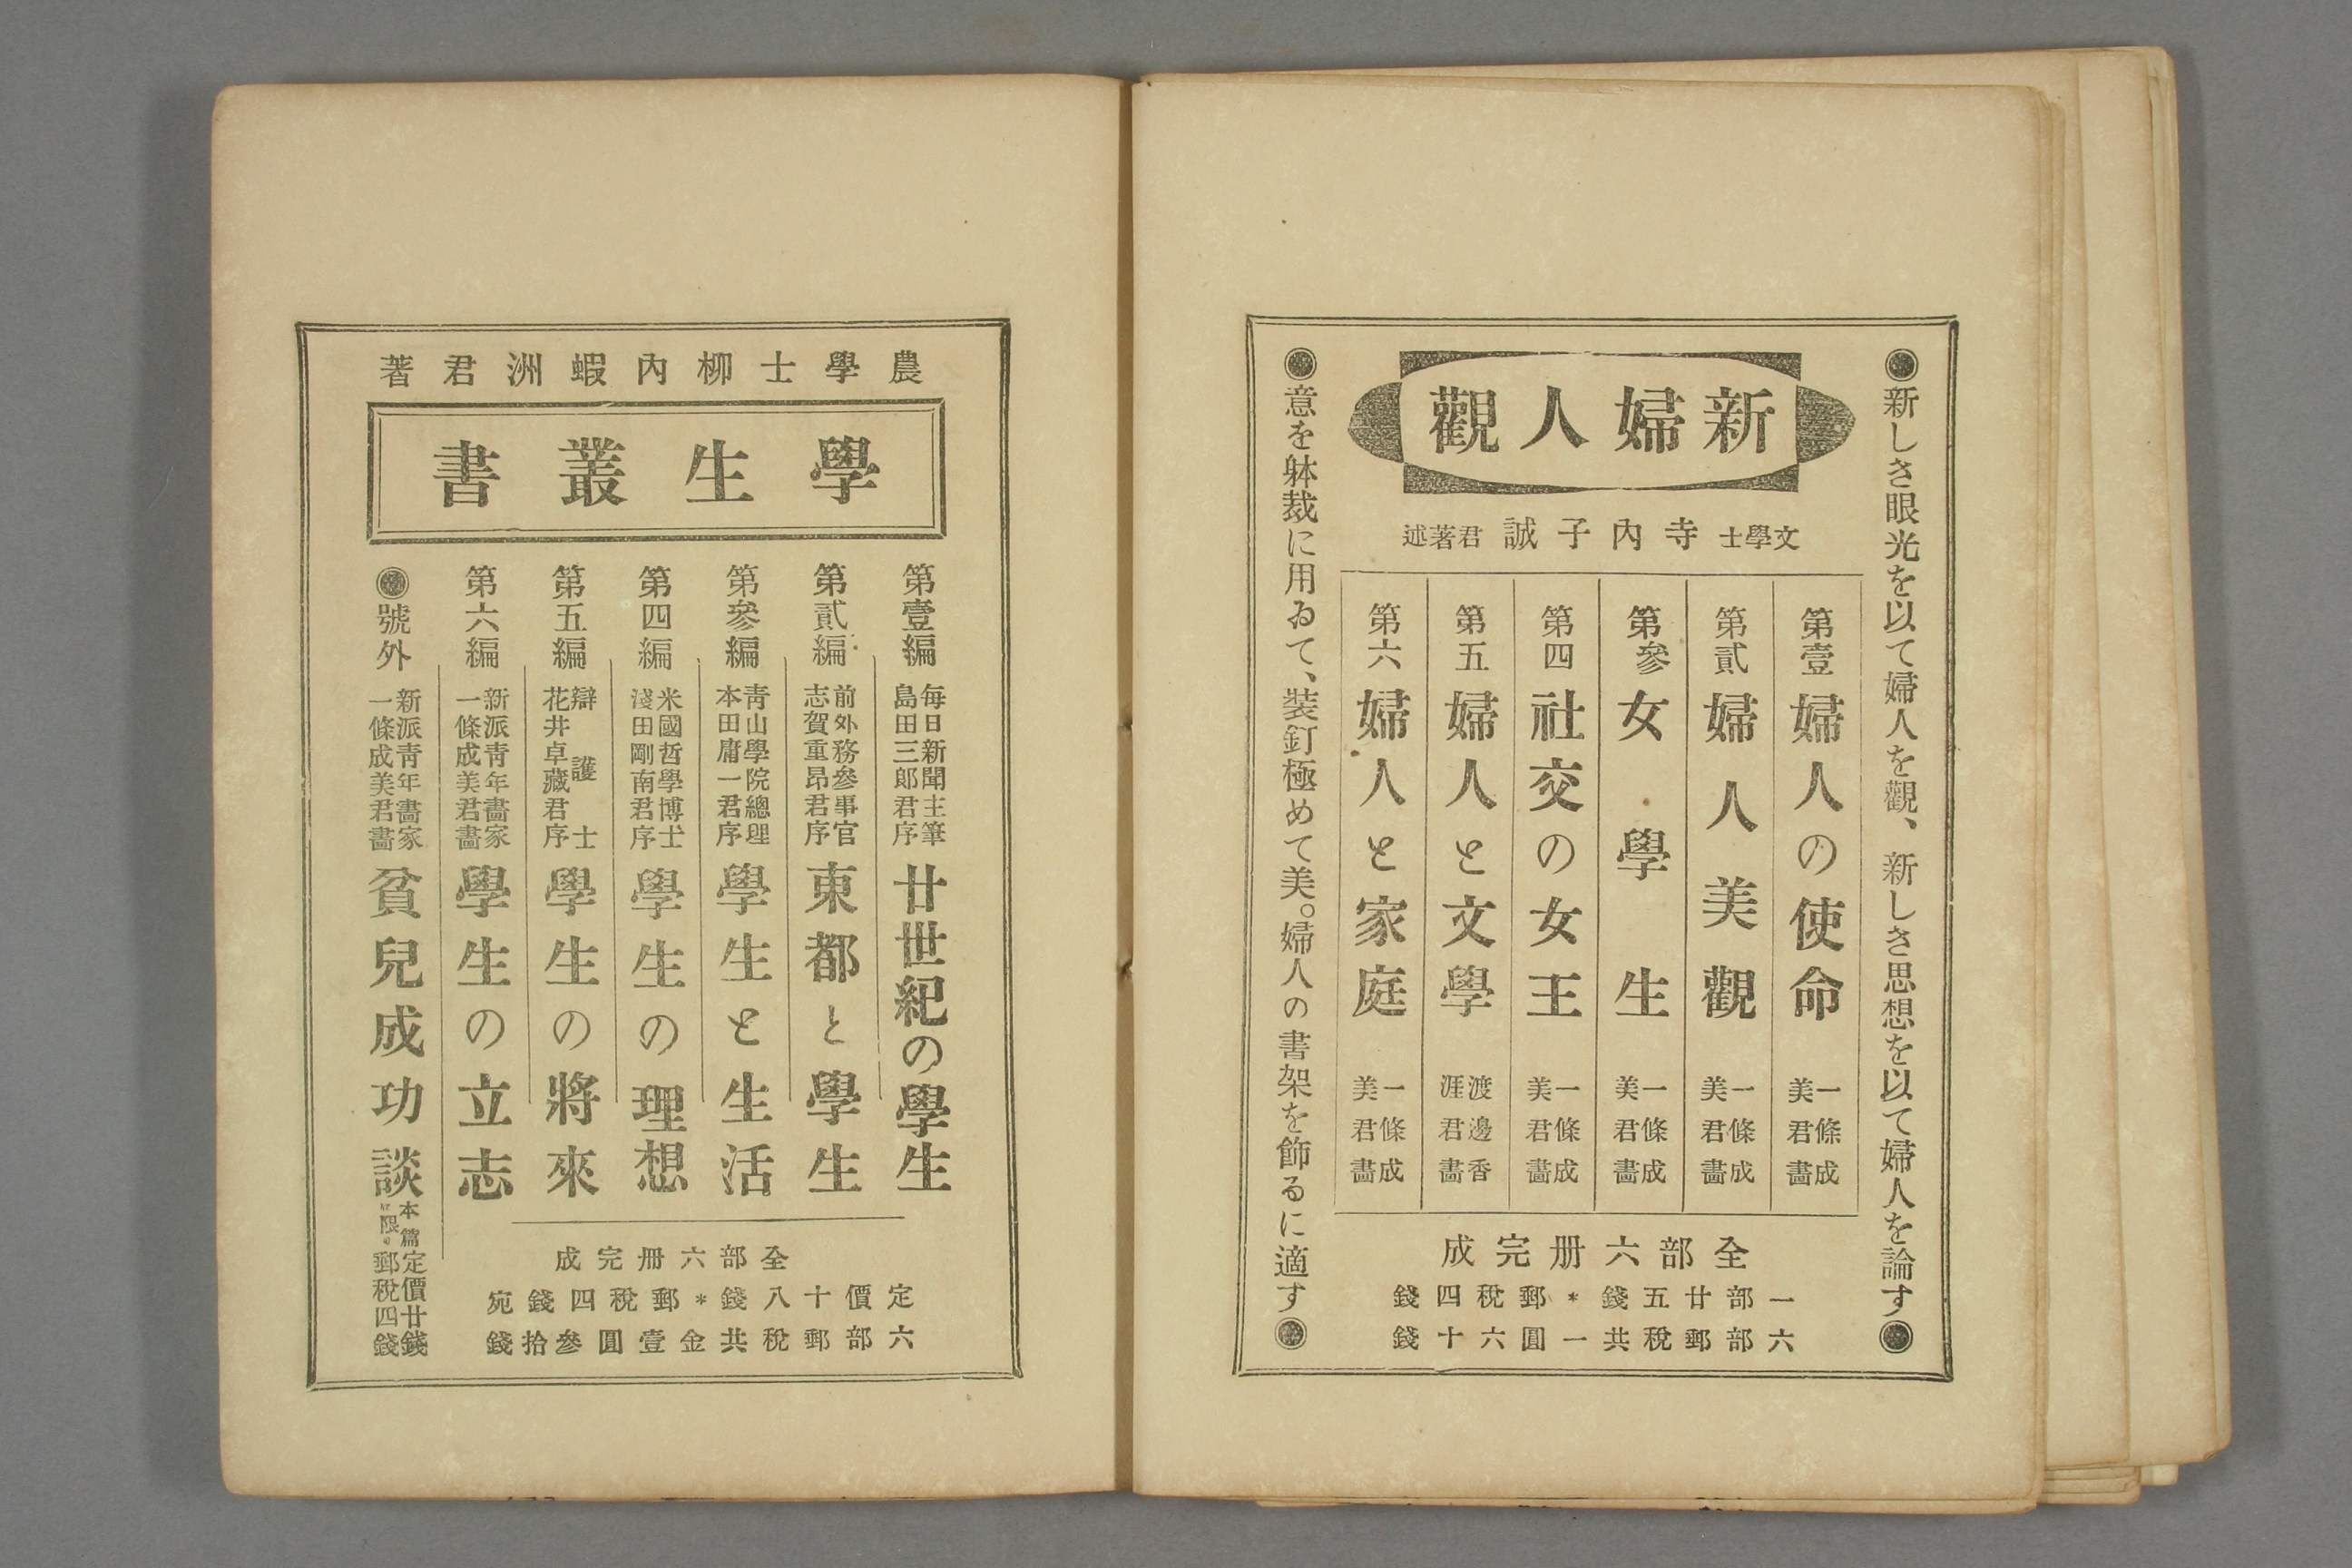 ●新しき眼光を以て婦人を觀、新しき思想を以て婦人を論す●
新婦人觀
文學士寺內子誠君著述
第壹 婦人の使命 一條成美君畵
第貳 婦人美觀 一條成美君畵
第參 女學生 一條成美君畵
第四 社交の女王 一條成美君畵
第五 婦人と文學 渡邊香涯君畵
第六 婦人と家庭 一條成美君畵
全部六册完成
一部廿五錢*郵稅四錢
六部郵稅共一圓六十錢
●意を躰裁に用ゐて、装釘極めて美。婦人の書架を飾るに適す●
農學士柳內蝦洲君著
學生叢書
第壹編 每日新聞主筆島田三郎君序 廿世紀の學生
第貳編 前外務參事官志賀重昂君序 東都と學生
第參編 靑山學院總理本田庸一君序 學生と生活
第四編 米國哲學博士淺田剛南君序 學生の理想
第五編 辯護士花井卓藏君序 學生の將來
第六編 新派靑年畵家一條成美君畵 學生の立志
●號外 新派靑年畵家一條成美君畵 貧兒成功談 本篇限 定價廿錢郵稅四錢
全部六册完成
定價十八錢*郵稅四錢宛
六部郵稅共金壹圓參拾錢